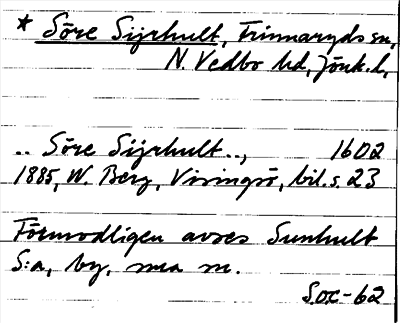 * Söre Sijrhult, Finnaryds sn,
N. Vedbo hd, Jönk. l,
.. Söre Sijrhult.., 1602
1885, W. Berg, Visingsö, bil. s. 23
Förmodligen avses Sunhult
S:a, by, sma sn.
S.O.C-62